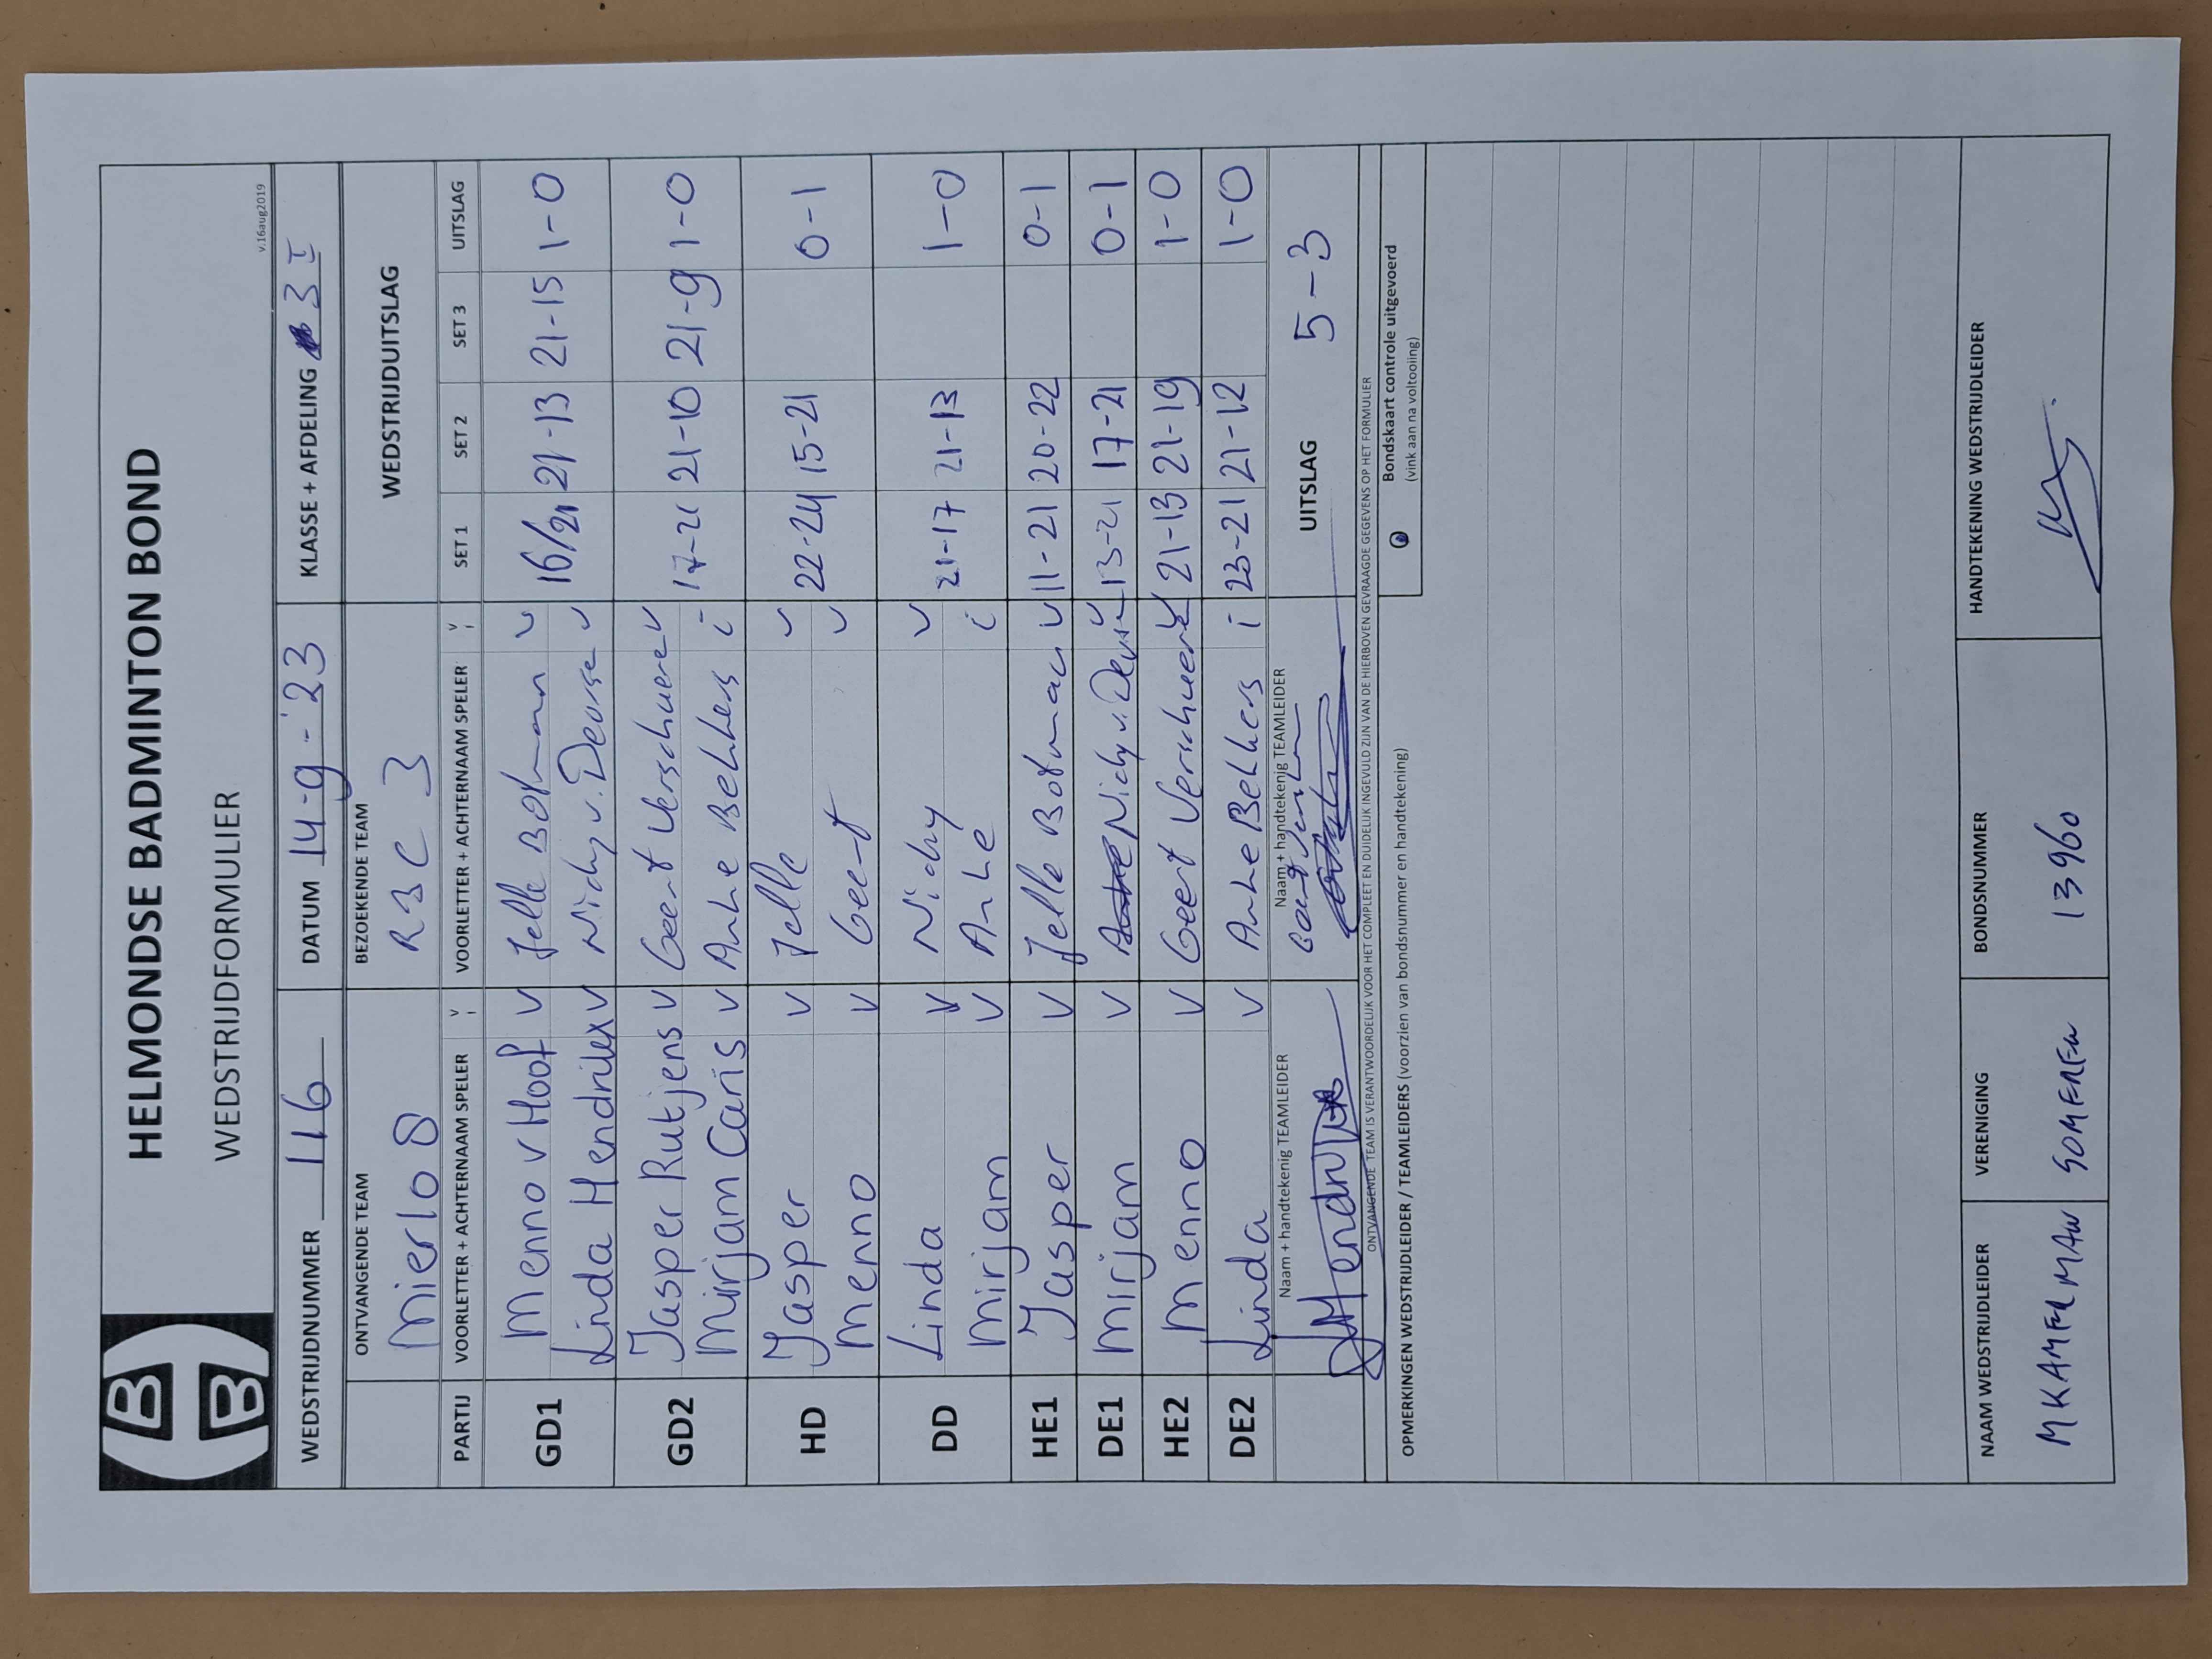 HELMONDSE BADMINTON BOND
WEDSTRIJDFORMULIER
v.16aug2019
WEDSTRIJDNUMMER 116 DATUM 14-9-'23 KLASSE + AFDELING 3 I
ONTVANGENDE TEAM BEZOEKENDE TEAM WEDSTRIJDUITSLAG
Mierlo 8 RBC 3
PARTIJ VOORLETTER + ACHTERNAAM SPELER V I VOORLETTER + ACHTERNAAM SPELER V I SET 1 SET 2 SET 3 UITSLAG
GD1 Menno v Hoof V Jelle Botman V 16/21 21-13 21-15 1-0
Linda Hendrikx V Nicky v. Deurse V
GD2 Jasper Rutjens V Geert Verschuere V 17-21 21-10 21-9 1-0
Mirjam Caris V Anke Bekkers i
HD Jasper V Jelle V 22-24 15-21 0-1
Menno V Geert V
DD Linda V Nicky V 21-17 21-13 1-0
Mirjam V Anke i
HE1 Jasper V Jelle Botman V 11-21 20-22 0-1
DE1 Mirjam V Nicky v. Deurse V 13-21 17-21 0-1
HE2 Menno V Geert Verschuere V 21-13 21-19 1-0
DE2 Linda V Anke Bekkers i 23-21 21-12 1-0
Naam + handtekenig TEAMLEIDER Naam + handtekenig TEAMLEIDER UITSLAG 5-3
ONTVANGENDE TEAM IS VERANTWOORDELIJK VOOR HET COMPLEET EN DUIDELIJK INGEVULD ZIJN VAN DE HIERBOVEN GEVRAAGDE GEGEVENS OP HET FORMULIER
Bondskaart controle uitgevoerd
(vink aan na voltooiing)
OPMERKINGEN WEDSTRIJDLEIDER / TEAMLEIDERS (voorzien van bondsnummer en handtekening)
NAAM WEDSTRIJDLEIDER VERENIGING BONDSNUMMER HANDTEKENING WEDSTRIJDLEIDER
M KAMERMAN SOMEREN 13960